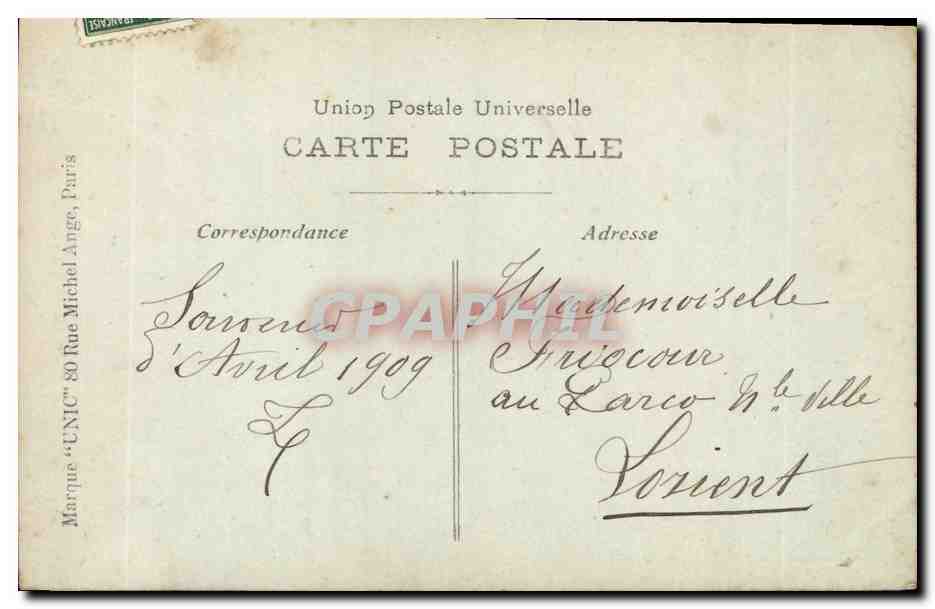 FRANÇAISE
Union Postale Universelle
CARTE POSTALE
Marque "UNIC" 80 Rue Michel Ange, Paris
Correspondance
Souvenir
d'Avril 1909
Adresse
Mademoiselle
au Larco Nle Ville
Lorient
CPAPHIL